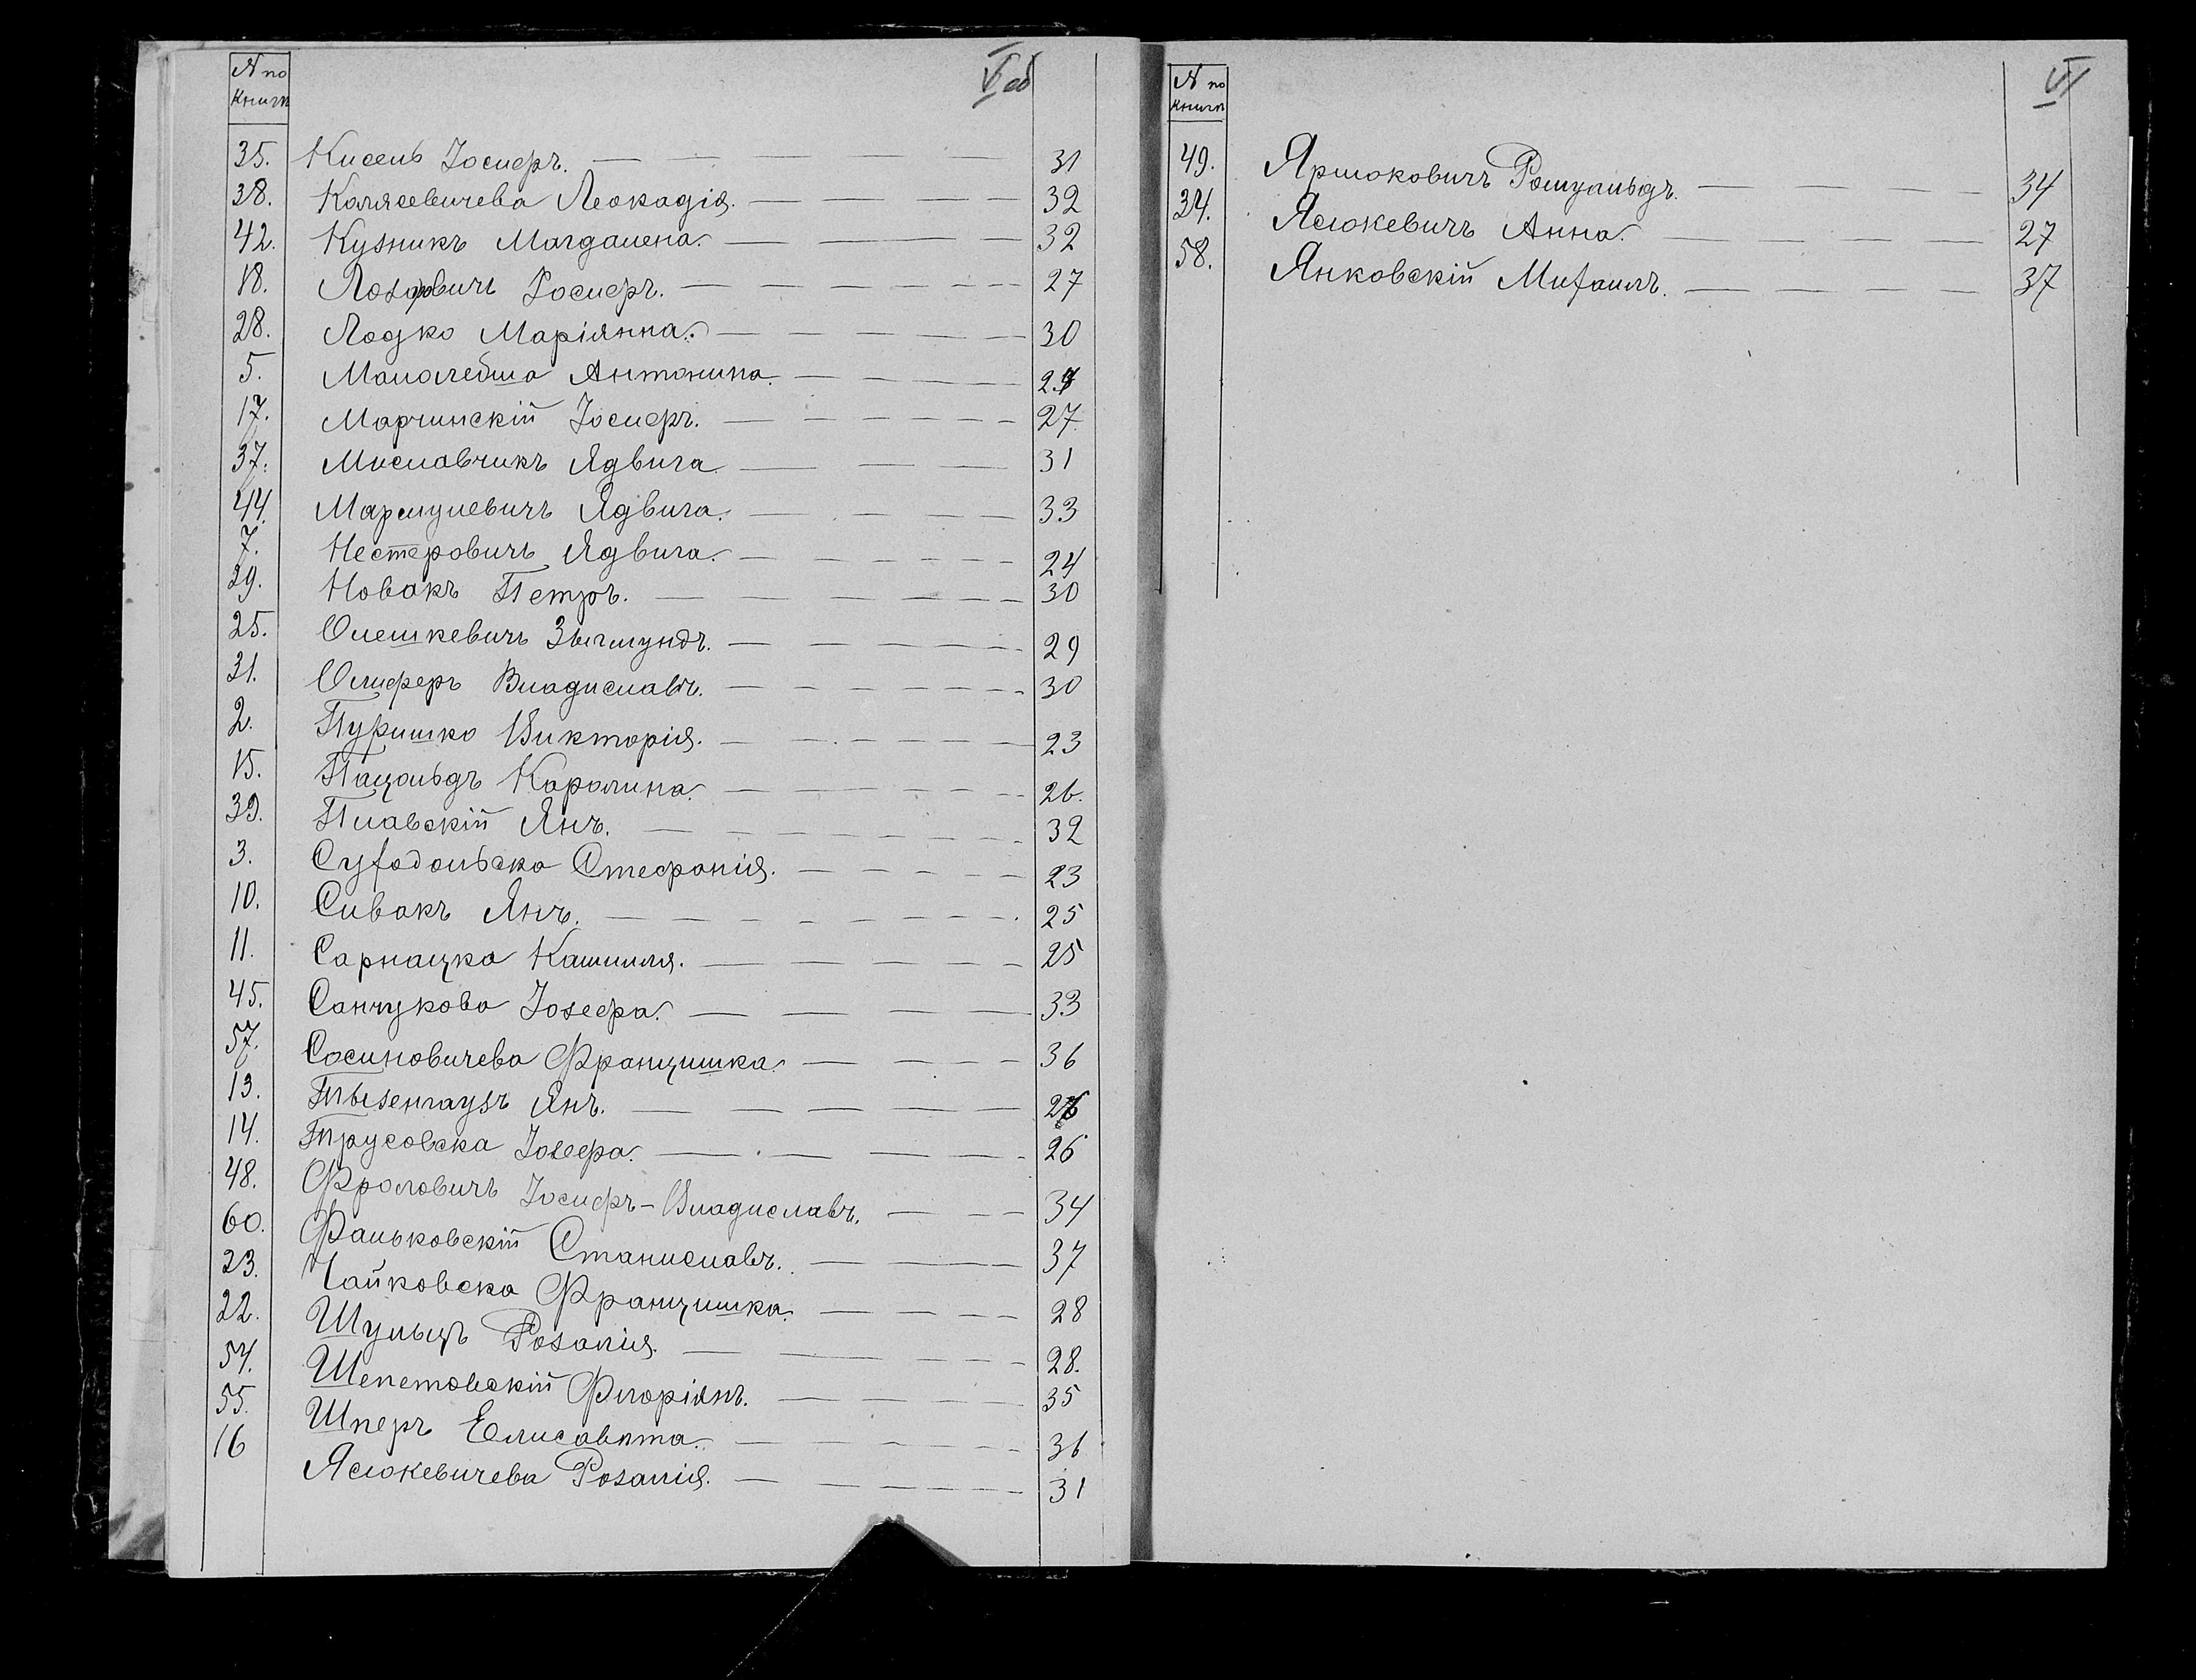 № по
книгѣ
V об
35. Кисель Іосифъ. 31
38. Калясевичева Леокадія. 32
42. Кузникъ Магдалена. 32
18. Лозовичъ Іосифъ. 27
28. Лодко Маріянна. 30
5. Антонина.
17. Марчинскій Іосифъ. 27
37. Миславчикъ Ядвига 31
44. Мармулевичъ Ядвига. 33
7. Нестеровичъ Ядвига. 24
29. Новакъ Петръ. 30
25. Олешкевичъ Зыгмундъ. 29
31. Олиферъ Владиславъ. 30
2. Пуришко Викторія. 23
15. Пацольдъ Каролина. 26.
39. Плавскій Янъ. 32
3. Суходольска Стефанія. 23
10. Сивакъ Янъ. 25
11. Сарнацка Камилля. 25
45. Санчукова Іозефа. 33
57. Сосиновичева Францишка. 36
13. Тызенгаузъ Янъ. 26
14. Трусовска Іозефа. 26
48. Фроловичъ Іосифъ-Владиславъ. 34
60. Фальковскій Станиславъ. 37
23. Чайковска Францишка. 28
22. Шульцъ Розалія. 28.
54. Шепетовскій Флоріянъ. 35
55. Шперъ Елисавѣта. 36
16 Ясюкевичева Розалія. 31
№ по
книгѣ
VI
49. Ярмоковичъ Ромуальдъ. 34
34. Ясюкевичъ Анна. 27
58. Янковскій Михаилъ. 37